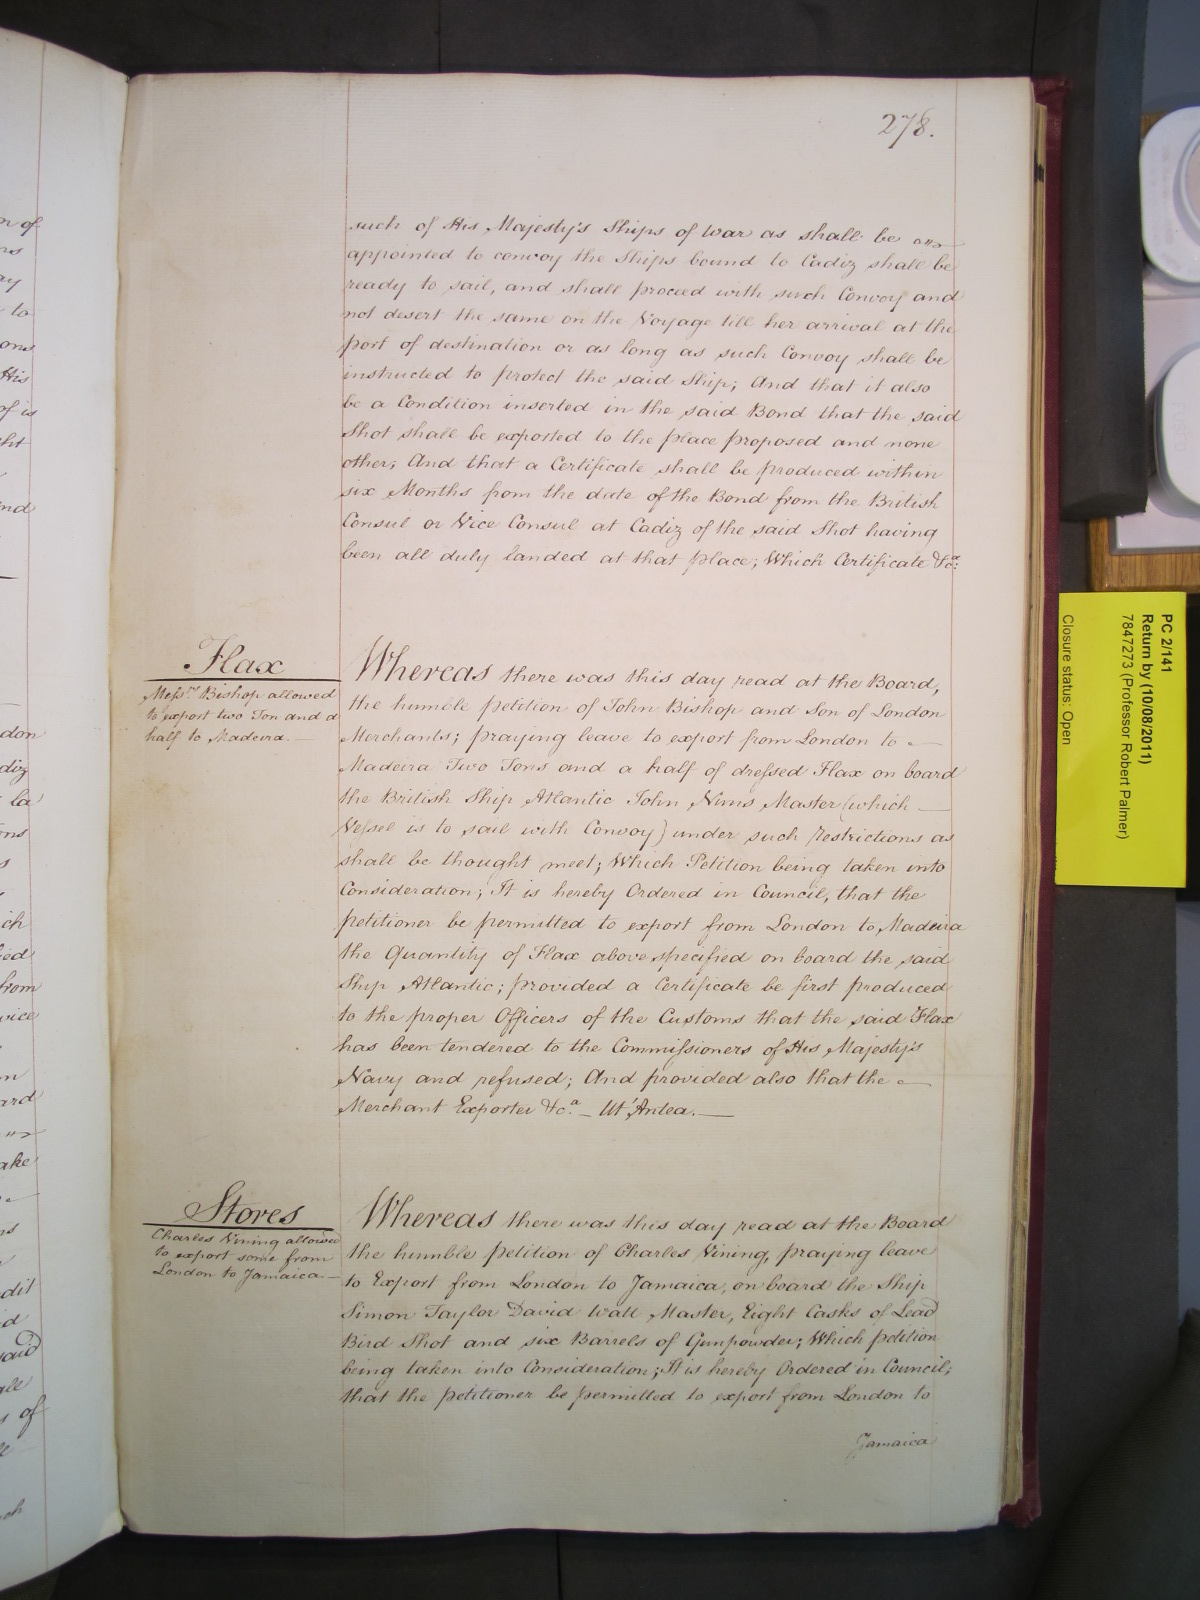 278.
such of His Majesty's Ships of War as shall be
appointed to convoy the Ships bound to Cadiz shall be
ready to sail, and shall proceed with such Convoy and
not desert the same on the Voyage till her arrival at the
port of destination or as long as such Convoy shall be
instructed to protect the said Ship; And that it also
be a Condition inserted in the said Bond that the said
Shot shall be exported to the place proposed and none
other; And that a Certificate shall be produced within
six Months from the date of the Bond from the British
Consul or Vice Consul at Cadiz of the said Shot having
been all duly landed at that place; Which Certificate &ca:
Flax
Messrs Bishop allowed
to export two Ton and a
half to Madeira.
Whereas there was this day read at the Board,
the humble petition of John Bishop and Son of London
Merchants; praying leave to export from London to
Madeira Two Tons and a half of dressed Flax on board
the British Ship Atlantic John Nims Master (which
Vessel is to sail with Convoy) under such restrictions as
shall be thought meet; Which Petition being taken into
Consideration; It is hereby Ordered in Council, that the
petitioner be permitted to export from London to Madeira
the Quantity of Flax above specified on board the said
Ship Atlantic; provided a Certificate be first produced
to the proper Officers of the Customs that the said Flax
has been tendered to the Commissioners of His Majesty's
Navy and refused; And provided also that the
Merchant Exporter &c.a Ut Antea.
Stores
Charles Vining allowed
to export some from
London to Jamaica
Whereas there was this day read at the Board
the humble petition of Charles Vining, praying leave
to Export from London to Jamaica, on board the Ship
Simon Taylor David Watt Master, Eight Casks of Lead
Bird Shot and six Barrels of Gunpowder; Which petition
being taken into Consideration; It is hereby Ordered in Council;
that the petitioner be permitted to export from London to
Jamaica
PC 2/141
Return by (10/08/2011)
7847273 (Professor Robert Palmer)
Closure status: Open